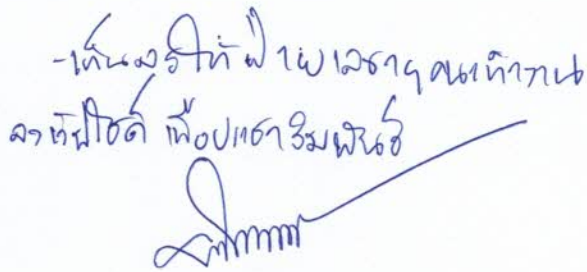 -เห็นควรให้ฝ่ายเลขาฯ คณะทำงาน
ลงเว็บไซต์ เพื่อประชาสัมพันธ์